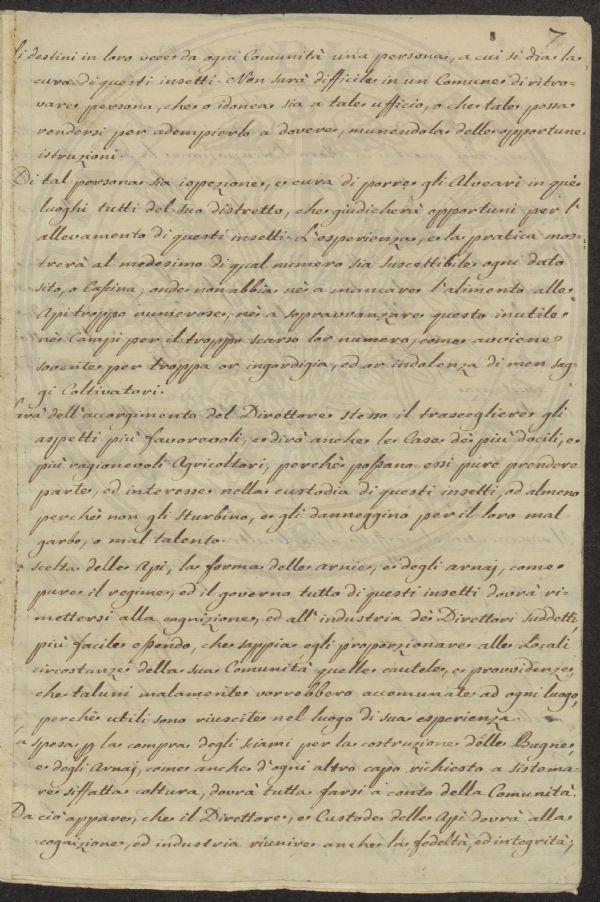 7
Si destini in loro vece da ogni Comunità una persona, a cui si dia la
cura di questi insetti. Non sarà difficile in un Comune di ritro-
vare persona, che o idonea sia a tale ufficio, o che tale possa
rendersi per adempierlo a dovere, munendola delle opportune
istruzioni.
Di tal persona sia ispezione, e cura di porre gli Alveari in què
luoghi tutti del suo distretto, che giudicherà opportuni per l'
allevamento di questi insetti. L'esperienza, e la pratica mos-
trerà al medesimo di qual numero sia suscettibile ogni dato
sito, o Cascina; onde non abbia nè a mancare l'alimento alle
Api troppo numerose, nè a sopravvanzare questo inutile
nè Campi per il troppo scarso lor numero, come avviene
sovente per troppa or ingordigia, ed or indolenza di men sag-
gi Coltivatori.
Sarà dell'accorgimento del Direttore stesso il trascegliere gli
aspetti più favorevoli, e dirò anche le Case dè più docili, e
più ragionevoli Agricoltori, perchè possano essi pure prendere
parte, ed interesse nella custodia di questi insetti, od almeno
perchè non gli sturbino, e gli danneggino per il loro mal
garbo, o mal talento.
scelta delle Api, la forma delle arnie, e degli arnaj, come
pure il regime, ed il governo tutto di questi insetti dovrà ri-
mettersi alla cognizione, ed all'industria dè Direttori suddetti,
più facile essendo, che sappia egli proporzionare alle Locali
circostanze della sua Comunità quelle cautele, e provvidenze,
che taluni malamente vorrebbero accomunate ad ogni luogo,
perchè utili sono riuscite nel luogo di sua esperienza.
spesa p la compra degli sciami per la costruzione delle Bugne,
e degli Arnaj, come anche d'ogni altro capo richiesto a sistema-
re siffatta coltura, dovrà tutta farsi a conto della Comunità.
Da ciò appare, che il Direttore, e Custode delle Api dovrà alla
cognizione, ed industria riunire anche la fedeltà, ed integrità;